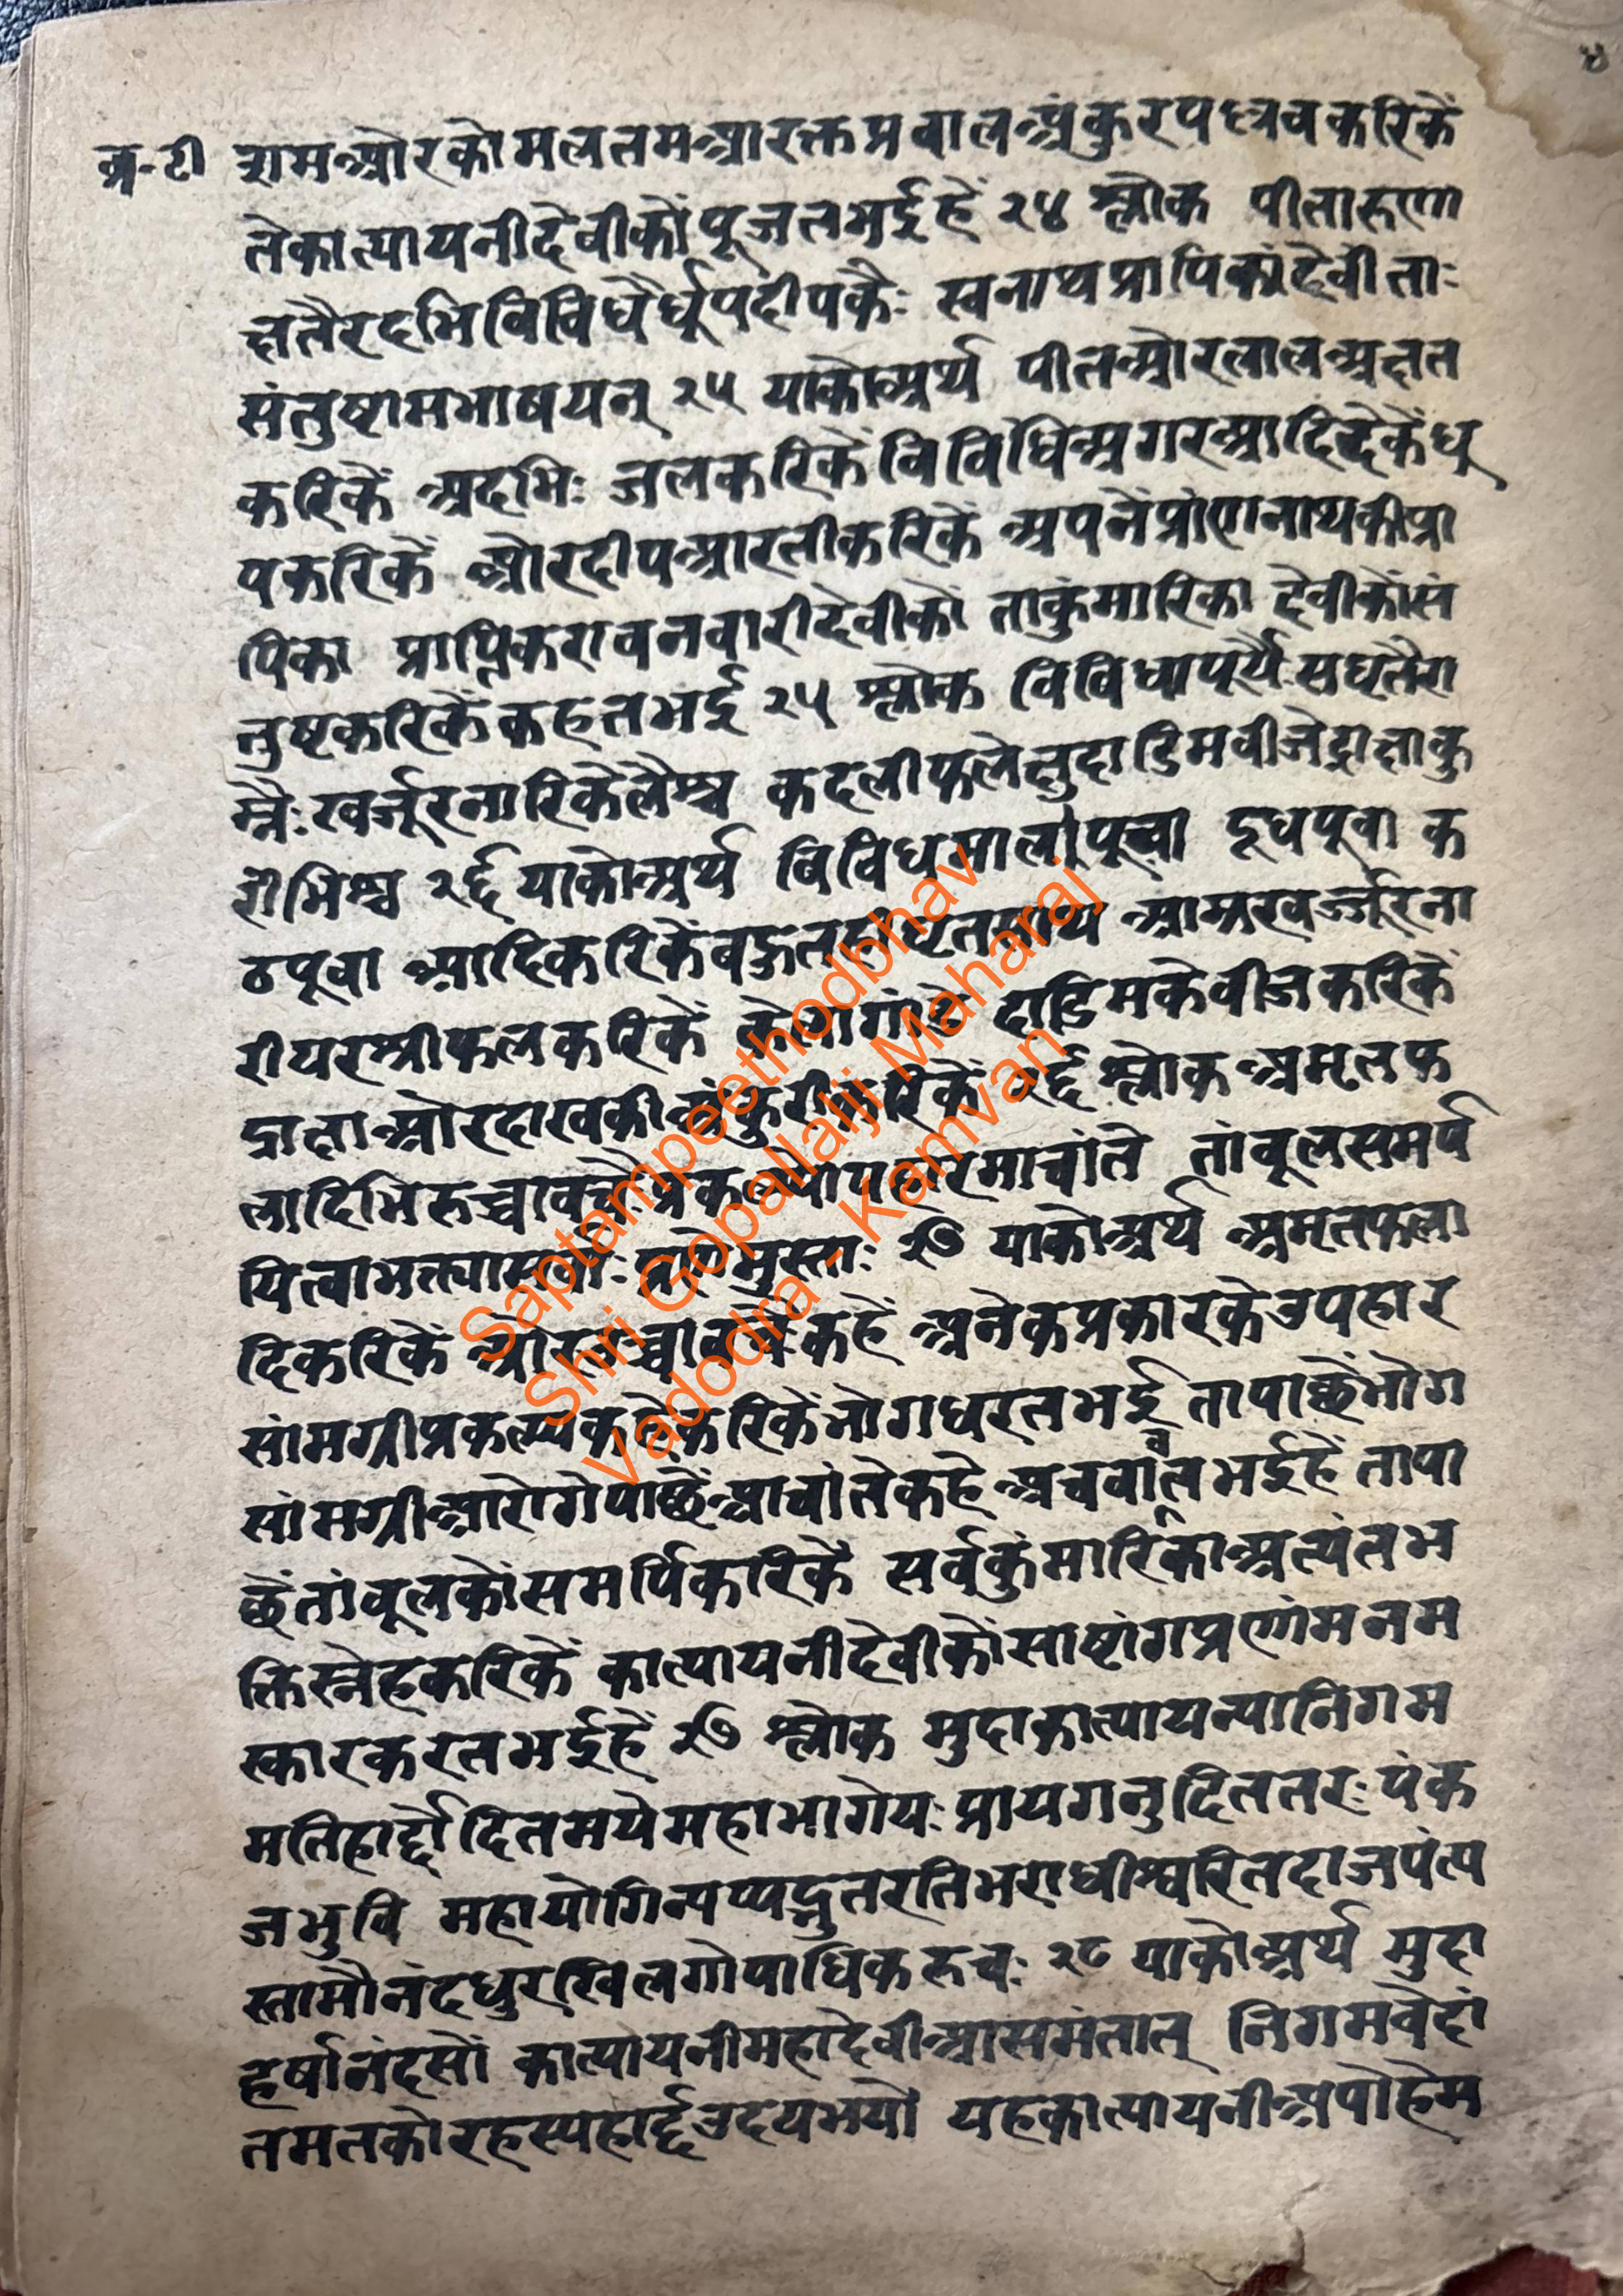 ४
व्र-टी
त्राम और कोमल लमआरक्तप्रवाल अंकुरपल्लवकरिकें
तेकात्यायनीदेवीकों पूजतभईहें २४ श्लोक पीतारुणा
क्षतैरदभिविविधैर्धूपदीपकैः स्वनाथप्रापिकांदेवीं ताः
संतुष्टामभाषयन् २५ याकोअर्थ पीतओरलालअक्षत
करिकें अदभिः जलकरिकें विविधिअगरआदिदेकेंधू
पकरिकें ओरदीपआरतीकरिकें अपनेंप्रांणनाथकीप्रा
पिका प्राप्तिकरावनवारीदेवीकों ताकुंमारिका देवीकोंसं
तुष्टकरिकेंकहतभई २५ श्लोक विविधापूर्यैः सघृतैरा
म्रैः खर्जूरनारिकेलैश्च कदलीफलेक्षुदाडिमवीजेद्राक्षाकु
रोभिश्च २६ याकोअर्थ विविधमालापूवा दूधपूवा क
ठपूवा आदिकरिकेंबहुतहीघृतसाथ आम्रखर्ज्जूरना
रीयरश्रीफलकरिकें केलागांडे दाडिमकेवीजकरिकें
द्राक्षाओरदाखकीअंकुरीकरिकें २६ श्लोक अमृतफ
लादिभिरुच्चावचैः प्रकल्प्योपहारमाचांते तांबूलसमर्प
यित्वाभक्त्यासर्वाः प्राणेमुस्ताः २७ याकोअर्थ अमृतफला
दिकरिकें ओरउच्चावचैः कहें अनेकप्रकारकेउपहार
सांमग्रीप्रकल्प्यकहेंकरिकेंभोगधरतभई तापाछेंभोग
सांमग्रीआरोगेपाछेंआचांतेकहे अचवावतभईहें तापा
छेंतांबूलकोंसमर्पिकरिकें सर्वकुंमारिकाअत्यंतभ
क्तिस्नेहकरिकें कात्यायनीदेवीकोंसाष्टांगप्रणांमनम
स्कारकरतभईहें २७ श्लोक मुदाकात्यायन्यानिगम
मतिहार्द्दोदितमयेमहाभागेयः प्रायगनुदिततरः पंक
जभुवि महायोगिन्यप्यद्भुतरतिभराधीश्वरितदाजपंत्य
स्तामौनंदधुरखिलगोपाधिकरुचः २८ याकोअर्थ मुदा
हर्षानंदसों कात्यायनीमहादेवीआसमंतात् निगमवेदां
तमतकोरहस्यहार्द्दउदयभयो यहकात्यायनीअपोहेम
Saptampeethodbhav
Shri Gopallalji Maharaj
Vadodra - Kamvan